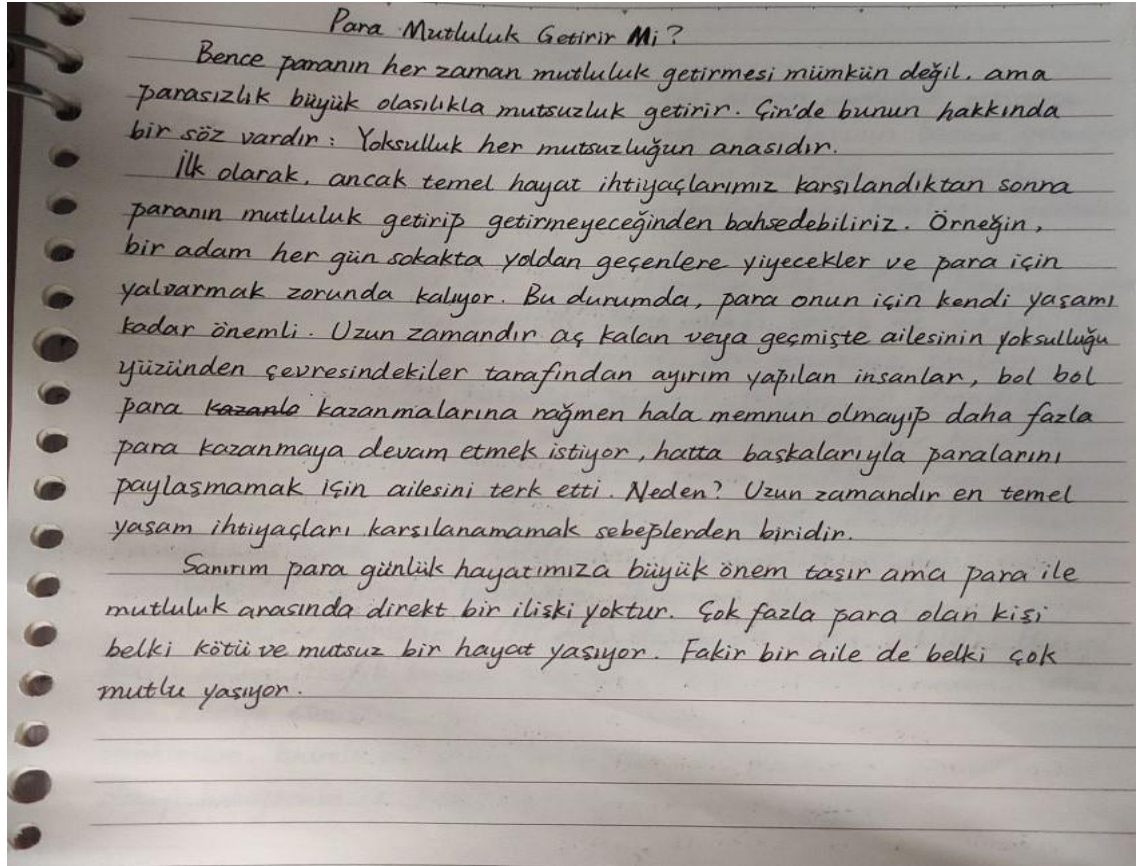 Para Mutluluk Getirir Mi?
Bence paranın her zaman mutluluk getirmesi mümkün değil, ama
parasızlık büyük olasılıkla mutsuzluk getirir. Çin'de bunun hakkında
bir söz vardır: Yoksulluk her mutsuzluğun anasıdır.
İlk olarak, ancak temel hayat ihtiyaçlarımız karşılandıktan sonra
paranın mutluluk getirip getirmeyeceğinden bahsedebiliriz. Örneğin,
bir adam her gün sokakta yoldan geçenlere yiyecekler ve para için
yalvarmak zorunda kalıyor. Bu durumda, para onun için kendi yaşamı
kadar önemli. Uzun zamandır aç kalan veya geçmişte ailesinin yoksulluğu
yüzünden çevresindekiler tarafından ayırım yapılan insanlar, bol bol
para kazanla kazanmalarına rağmen hala memnun olmayıp daha fazla
para kazanmaya devam etmek istiyor, hatta başkalarıyla paralarını
paylaşmamak için ailesini terk etti. Neden? Uzun zamandır en temel
yaşam ihtiyaçları karşılanamamak sebeplerden biridir.
Sanırım para günlük hayatımıza büyük önem taşır ama para ile
mutluluk arasında direkt bir ilişki yoktur. Çok fazla para olan kişi
belki kötü ve mutsuz bir hayat yaşıyor. Fakir bir aile de belki çok
mutlu yaşıyor.